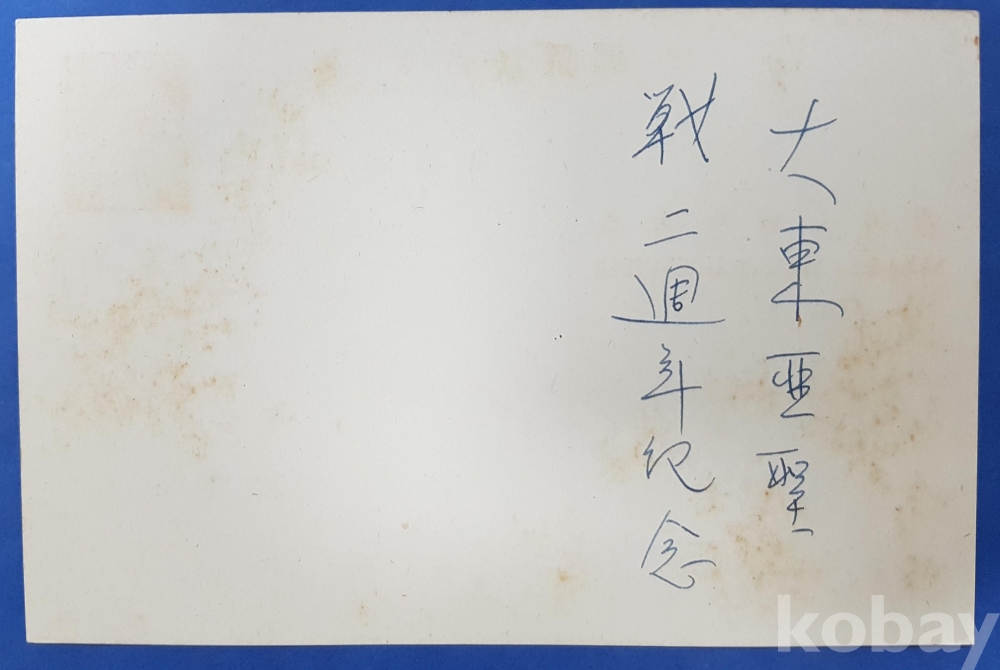 大東亜聖
戦二週年紀念
kobay